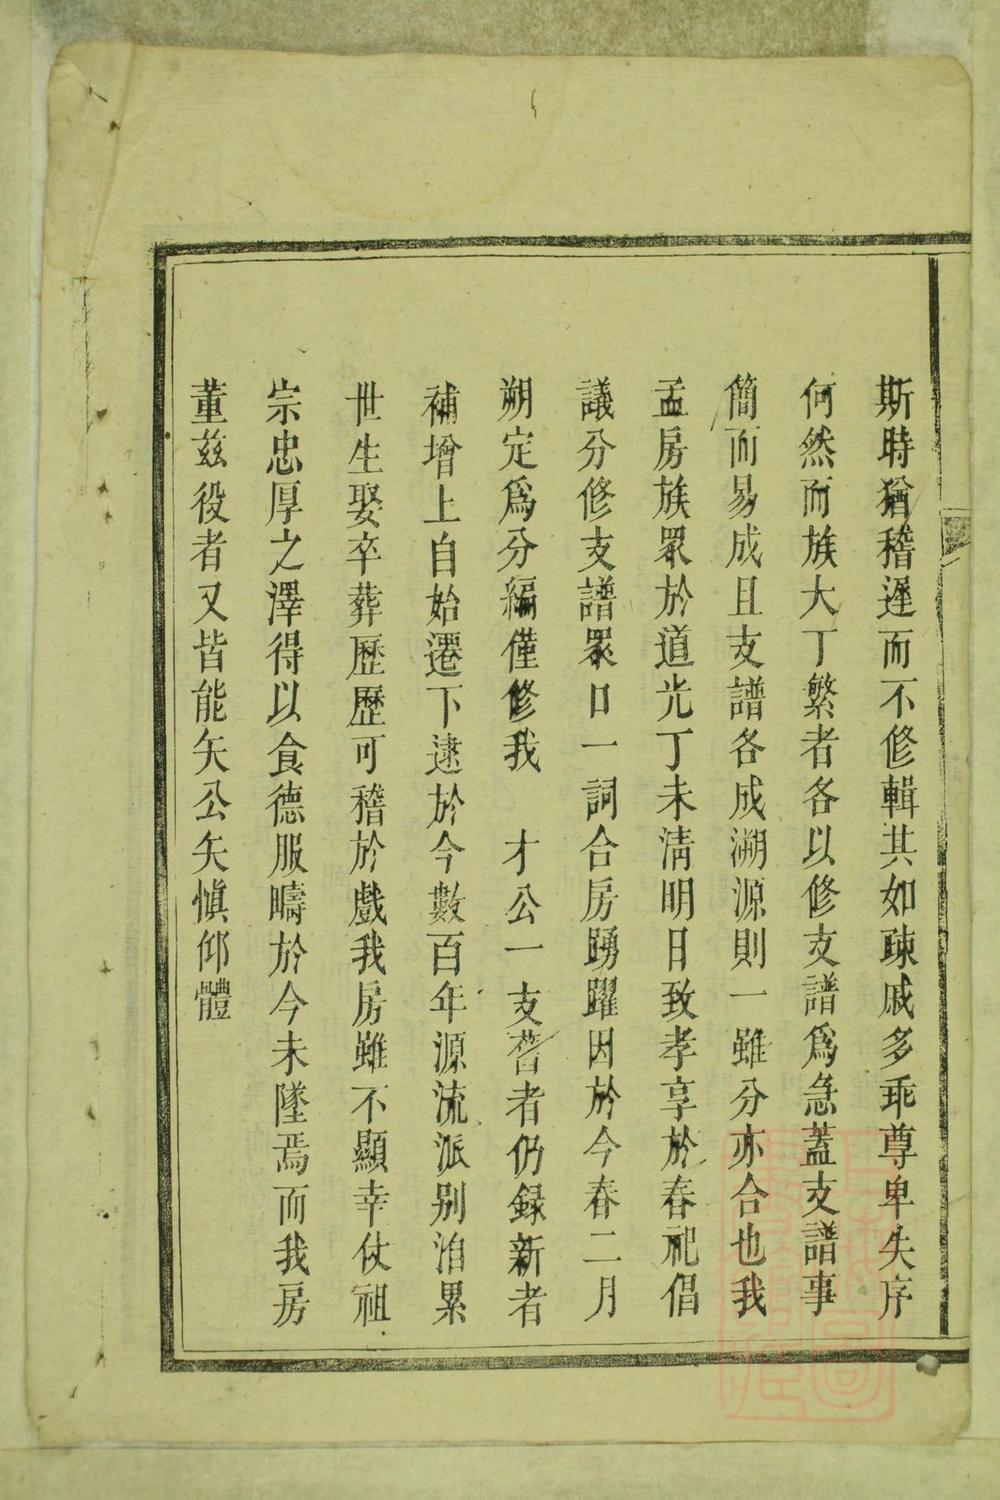 斯時猶稽遲而不修輯其如疎戚多乖尊卑失序
何然而族大丁繁者各以修支譜爲急蓋支譜事
簡而易成且支譜各成溯源則一雖分亦合也我
孟房族眾於道光丁未清明日致孝享於春祀倡
議分修支譜眾口一詞合房踴躍因於今春二月
朔定爲分編僅修我　才公一支舊者仍録新者
補增上自始遷下逮於今數百年源流派别洎累
世生娶卒葬歷歷可稽於戲我房雖不顯幸仗祖
宗忠厚之澤得以食德服疇於今未墜焉而我房
董兹役者又皆能矢公矢慎仰體